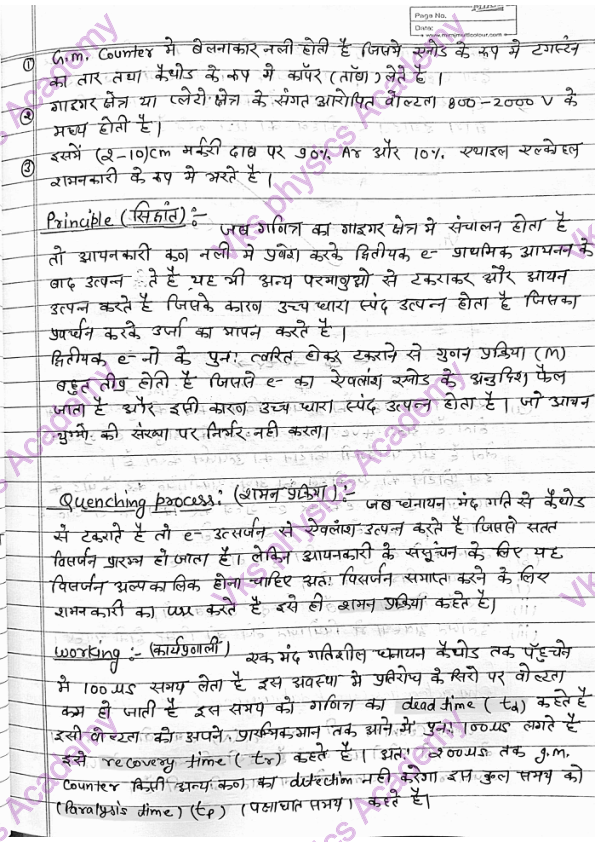 Page No.
Date:
① G.M. Counter में बेलनाकार नली होती है जिसमें एनोड के रूप में टंगस्टन
का तार तथा कैथोड के रूप में कॉपर (ताँबा) लेते है।
② गाइगर क्षेत्र या प्लेटो क्षेत्र के संगत आरोपित वोल्टता 800-2000 V के
मध्य होती है।
③ इसमें (2-10)cm मर्करी दाब पर 90% Ar और 10% एथाइल एल्कोहल
शमनकारी के रूप में भरते है।
Principle (सिद्धांत):- जब गणित्र का गाइगर क्षेत्र में संचालन होता है
तो आयनकारी कण नली में प्रवेश करके द्वितीयक e- प्राथमिक आयनन के
बाद उत्पन्न ते है यह भी अन्य परमाणुओ से टकराकर और आयन
उत्पन्न करते है जिसके कारण उच्च धारा स्पंद उत्पन्न होता है जिसका
प्रवर्धन करके उर्जा का मापन करते है।
द्वितीयक e- नो के पुनः त्वरित होकर टकराने से गुणन प्रक्रिया (M)
बहुत तीव्र होती है जिससे e- का ऐवलांश एनोड के अनुदिश फैल
जाता है और इसी कारण उच्च धारा स्पंद उत्पन्न होता है। जो आयन
युग्मो की संख्या पर निर्भर नही करता।
Quenching process: (शमन प्रक्रिया):- जब धनायन मंद गति से कैथोड
से टकराते है तो e- उत्सर्जन से ऐवलांश उत्पन्न करते है जिससे सतत
विसर्जन प्रारम्भ हो जाता है। लेकिन आयनकारी के संसूचन के लिए यह
विसर्जन अल्पकालिक होना चाहिए अतः विसर्जन समाप्त करने के लिए
शमनकारी का use करते है इसे ही शमन प्रक्रिया कहते है।
working:- (कार्यप्रणाली) एक मंद गतिशील धनायन कैथोड तक पँहुचने
मे 100 μs समय लेता है इस अवस्था मे प्रतिरोध के सिरो पर वोल्टता
कम हो जाती है इस समय को गणित्र का dead time (td) कहते है
इसी वोल्टता को अपने प्रारम्भिक मान तक आने में पुनः 100 μs लगते है
इसे recovery time (tr) कहते है। अतः 200 μs तक g.m.
counter किसी अन्य कण का detection नही करेगा इस कुल समय को
(Paralysis time) (tp) (पक्षाघात समय) कहते है।
Vks physics Academy